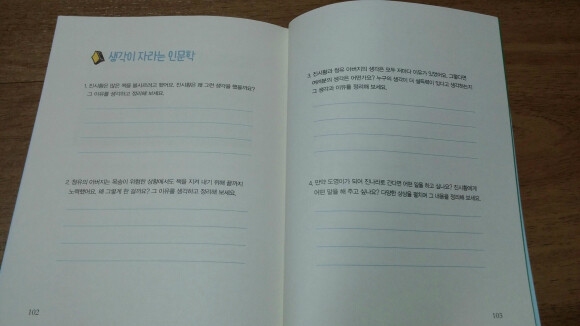 생각이 자라는 인문학
1. 진시황은 많은 책을 불사르라고 했어요. 진시황은 왜 그런 생각을 했을까요?
그 이유를 생각하고 정리해 보세요.
2. 청유의 아버지는 목숨이 위험한 상황에서도 책을 지켜 내기 위해 끝까지
노력했어요. 왜 그렇게 한 걸까요? 그 이유를 생각하고 정리해 보세요.
102
3. 진시황과 청유 아버지의 생각은 모두 저마다 이유가 있었어요. 그렇다면
여러분의 생각은 어떤가요? 누구의 생각이 더 설득력이 있다고 생각하는지
그 생각과 이유를 정리해 보세요.
4. 만약 도영이가 되어 진나라로 간다면 어떤 일을 하고 싶나요? 진시황에게
어떤 말을 해 주고 싶나요? 다양한 상상을 펼치며 그 내용을 정리해 보세요.
103